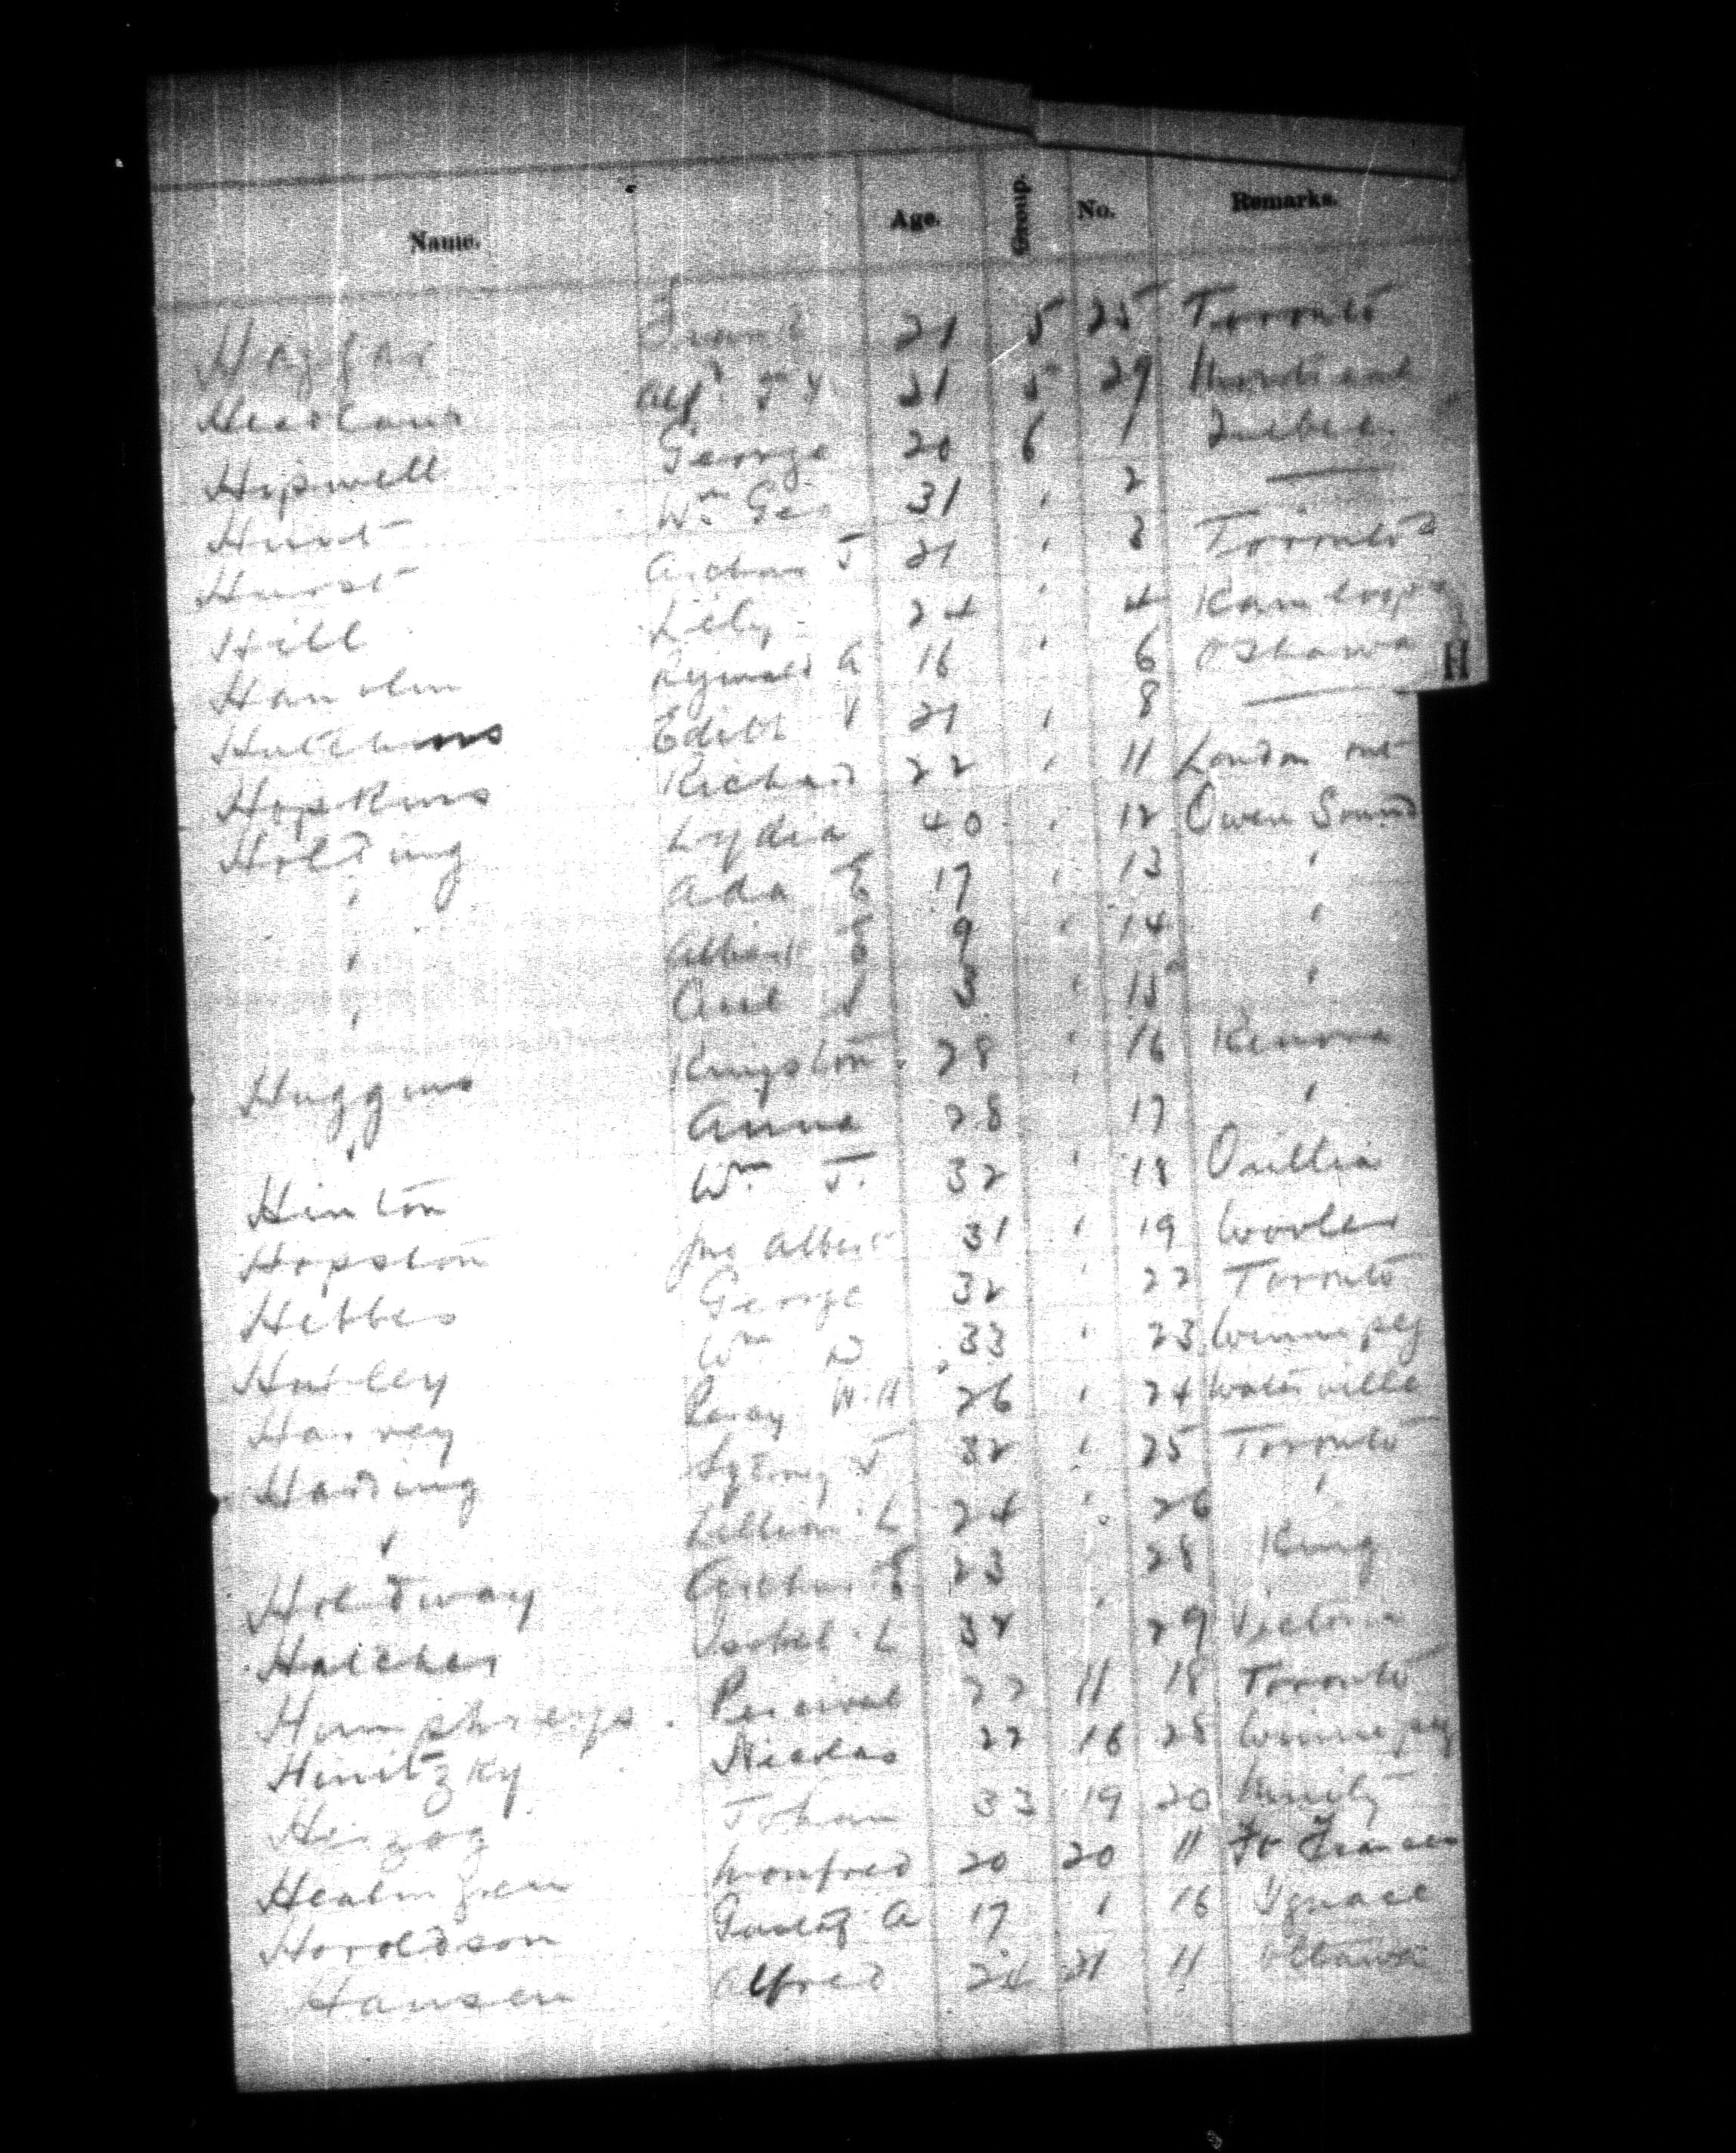 Name. Age. Group. No. Remarks.
Frank 21 5 25 Toronto
Alf. 21 5 29
Hipwell George 20 6 1 Quebec
Hunt Wm Geo 31 " 2 —
Hurst Arthur J 21 " 3 Toronto
Hill Lily 24 " 4 Kamloops
Reginald A 16 " 6 Oshawa
H
Hutchins Edith V 21 " 8 —
Hopkins Richard 22 " 11 London Ont
Holding Lydia 40 " 12 Owen Sound
" Ada E 17 " 13 "
" Albert E 9 " 14 "
" 3 " 15 "
Huggins Kingston 28 " 16 Kenora
" Anna 28 " 17 "
Hinton Wm J. 32 " 18 Orillia
Hopston Jno Albert 31 " 19 Wooler
Hebbes George 32 " 22 Toronto
Hurley Wm D 33 " 23 Winnipeg
Harvey Percy H.H 26 " 24 Waterville
Harding Sydney J 32 " 25 Toronto
" Lillian L 24 " 26 "
Holdway Arthur E 23 " 28 King
Hatcher Isobel L 32 " 29 Victoria
Humphreys. Percival 22 11 18 Toronto
Hinitzky Nicolas 22 16 28 Winnipeg
Herzog Johan 33 19 20
Healmgren Monfred 20 20 11 Ft Frances
Haroldson Gustaf A 17 " 16 Ignace
Hansen Alfred 24 21 11 Ottawa